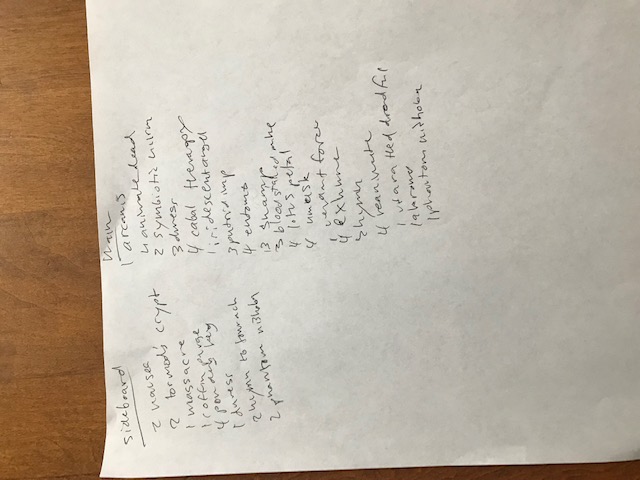 Sideboard
2 nausea
2 tormod's crypt
1 massacre
1 coffin purge
4 powder keg
1 duress
2 hymn to tourach
2 phantom nishoba
Main
1 arcanis
4 animate dead
2 symbiotic wurm
3 duress
4 cabal therapy
1 iridescent angel
3 putrid imp
4 entomb
13 swamp
3 bloodstained mire
4 lotus petal
4 unmask
1 verdant force
4 exhume
2 hymn
4 reanimate
1
1 akroma
1 phantom nishoba